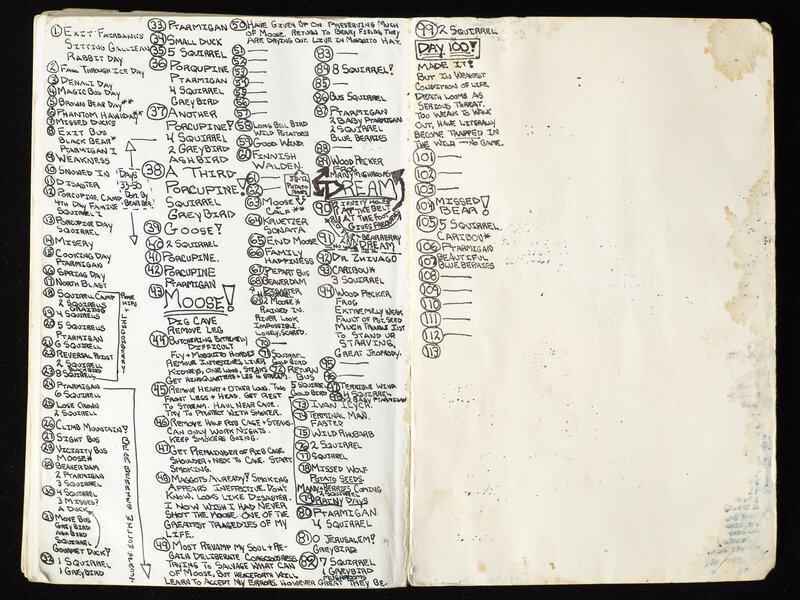 ① EXIT FAIRBANKS
SITTING GALLIEAN
RABBIT DAY
② FALL THROUGH ICE DAY
③ DENALI DAY
④ MAGIC BUS DAY
⑤ BROWN BEAR DAY**
⑥
⑦ MISSED DUCKS
⑧ EXIT BUS
BLACK BEAR*
PTARMIGAN 1
⑨ WEAKNESS
⑩ SNOWED IN
⑪ DISASTER
⑫ PORCUPINE CAMP
4TH DAY FAMINE
SQUIRREL 1
⑬ PORCUPINE DAY
SQUIRREL
⑭ MISERY
⑮ COOKING DAY
PTARMIGAN
⑯ SPRING DAY
⑰ NORTH BLAST
⑱ SQUIRREL CAMP
2 SQUIRRELS
GRAZING
⑲ 4 SQUIRRELS
⑳ 5 SQUIRRELS
PTARMIGAN
㉑ 6 SQUIRREL
㉒ REVERSAL POINT
2 SQUIRREL
㉓ 3 SQUIRREL
㉔ PTARMIGAN
6 SQUIRREL
㉕ LOVE CROWN
2 SQUIRREL
㉖ CLIMB MOUNTAIN!
㉗ SIGHT BUS
㉘ VICINITY BUS
MOOSE*
㉙ BEAVER DAM
2 PTARMIGAN
3 SQUIRREL
㉚ 4 SQUIRREL
3 MISSES?
A DUCK
㉛ MOVE BUS
GREY BIRD
ASH BIRD
SQUIRREL
GOURMET DUCK!
㉜ 1 SQUIRREL
1 GREYBIRD
ROSE
HIPS
㉝ PTARMIGAN
㉞ SMALL DUCK
㉟ 5 SQUIRREL
㊱ PORQUPINE
PTARMIGAN
4 SQUIRREL
GREYBIRD
㊲ ANOTHER
PORCUPINE!
4 SQUIRREL
2 GREYBIRD
ASHBIRD
㊳ A THIRD
PORCUPINE!
SQUIRREL
GREYBIRD
㊴ GOOSE!
㊵ 2 SQUIRREL
㊶ PORCUPINE.
㊷ PORCUPINE
PTARMIGAN
㊸ MOOSE!
DIG CAVE
REMOVE LEG
㊹ BUTCHERING EXTREMELY
DIFFICULT
FLY + MOSQUITO HORDES
REMOVE INTESTINES, LIVER
KIDNEYS, ONE LUNG, STEAKS
GET HINDQUARTERS + LEG TO STREAM.
㊺ REMOVE HEART + OTHER LUNG. TWO
FRONT LEGS + HEAD. GET REST
TO STREAM. HAUL NEAR CAVE.
TRY TO PROTECT WITH SMOKER.
㊻ REMOVE HALF RIB CAGE + STEAKS.
CAN ONLY WORK NIGHTS.
KEEP SMOKERS GOING.
㊼ GET REMAINDER OF RIB CAGE
SHOULDER + NECK TO CAVE. START
SMOKING.
㊽ MAGGOTS ALREADY! SMOKING
APPEARS INEFFECTIVE. DON'T
KNOW, LOOKS LIKE DISASTER.
I NOW WISH I HAD NEVER
SHOT THE MOOSE. ONE OF THE
GREATEST TRAGEDIES OF MY
LIFE.
㊾ MOST REVAMP MY SOUL + RE-
GAIN DELIBERATE CONSCIOUSNESS.
TRYING TO SALVAGE WHAT CAN
OF MOOSE, BUT HENCEFORTH WILL
LEARN TO ACCEPT MY ERRORS, HOWEVER GREAT THEY BE.
㊿ HAVE GIVEN UP ON PRESERVING MUCH
OF MOOSE. RETURN TO BERRY FIELDS, THEY
ARE DRYING OUT. LIVE IN MOSQUITO HAT.
51
52
53
54
55
56
57
58 LONG BILL BIRD
WILD POTATOES
59 GOOD WIND.
60 FINNISH
WALDEN.
61
62
63 MOOSE
CALF**
64 KRUETZER
SONATA
65 END MOOSE
66 FAMILY
HAPPINESS
67 DEPART BUS
68 BEAVERDAM
69 DISASTER
2 MOOSE*
RAINED IN.
RIVER LOOK
IMPOSSIBLE.
LONELY, SCARED.
70
71 SQUIRREL
GOLD BIRD
72 RETURN
BUS
5 SQUIRREL
GOLD BIRD
73 IVAN ILYCH.
74 TERMINAL MAN.
FASTER
75 WILD RHUBARB
76 2 SQUIRREL
77 SQUIRREL
78 MISSED WOLF
POTATO SEEDS.
MANY BERRIES COMING
79 RAINY DAYS
80 PTARMIGAN.
4 SQUIRREL
81 O JERUSALEM!
GREYBIRD
82 7 SQUIRREL
1 GREYBIRD
MUSHROOMS
83
84 8 SQUIRREL!
85
86 BUS SQUIRREL
87 PTARMIGAN
2 BABY PTARMIGAN
2 SQUIRREL
BLUE BERRIES
88
89 WOOD PECKER
FROG
MANY MUSHROOMS
DREAM
90
91
DREAM
92 DR. ZHIVAGO
93 CARIBOU*
3 SQUIRREL
94 WOOD PECKER
FROG
EXTREMELY WEAK
FAULT OF POT. SEED
MUCH TROUBLE JUST
TO STAND UP
STARVING.
GREAT JEOPARDY.
95
96
97 TERRIBLE WIND
98 4 SQUIRREL
2 BABY PTARMIGAN
99 2 SQUIRREL
DAY 100!
MADE IT!
BUT IN WEAKEST
CONDITION OF LIFE
DEATH LOOMS AS
SERIOUS THREAT.
TOO WEAK TO WALK
OUT, HAVE LITERALLY
BECOME TRAPPED IN
THE WILD—NO GAME.
101
102
103
104 MISSED
BEAR!
105 5 SQUIRREL.
CARIBOU*
106 PTARMIGAN
107 BEAUTIFUL
BLUE BERRIES
108
109
110
111
112
113